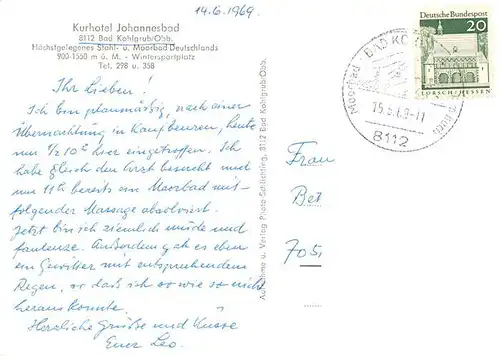 14.6.1969
Kurhotel Johannesbad
8112 Bad Kohlgrub/Obb.
Höchstgelegenes Stahl- u. Moorbad Deutschlands
900-1550 m ü. M. - Wintersportplatz
Tel. 298 u. 358
Ihr Lieben!
Ich bin planmäßig, nach einer
Übernachtung in Kaufbeuren, heute
um 1/2 10h hier eingetroffen. Ich
habe gleich den Arzt besucht und
um 11h bereits ein Moorbad mit
folgender Massage absolviert.
Jetzt bin ich ziemlich müde und
faulenze. Außerdem gab es eben
ein Gewitter mit entsprechendem
Regen, so daß ich so wie so nicht
heraus konnte.
Herzliche Grüße und Küsse
Euer Leo.
Aufnahme u. Verlag Photo-Schlichting, 8112 Bad Kohlgrub/Obb.
Deutsche Bundespost
20
LORSCH/HESSEN
Moorbad
BAD KO
15.6.69-11
8112
Frau
Bet
705